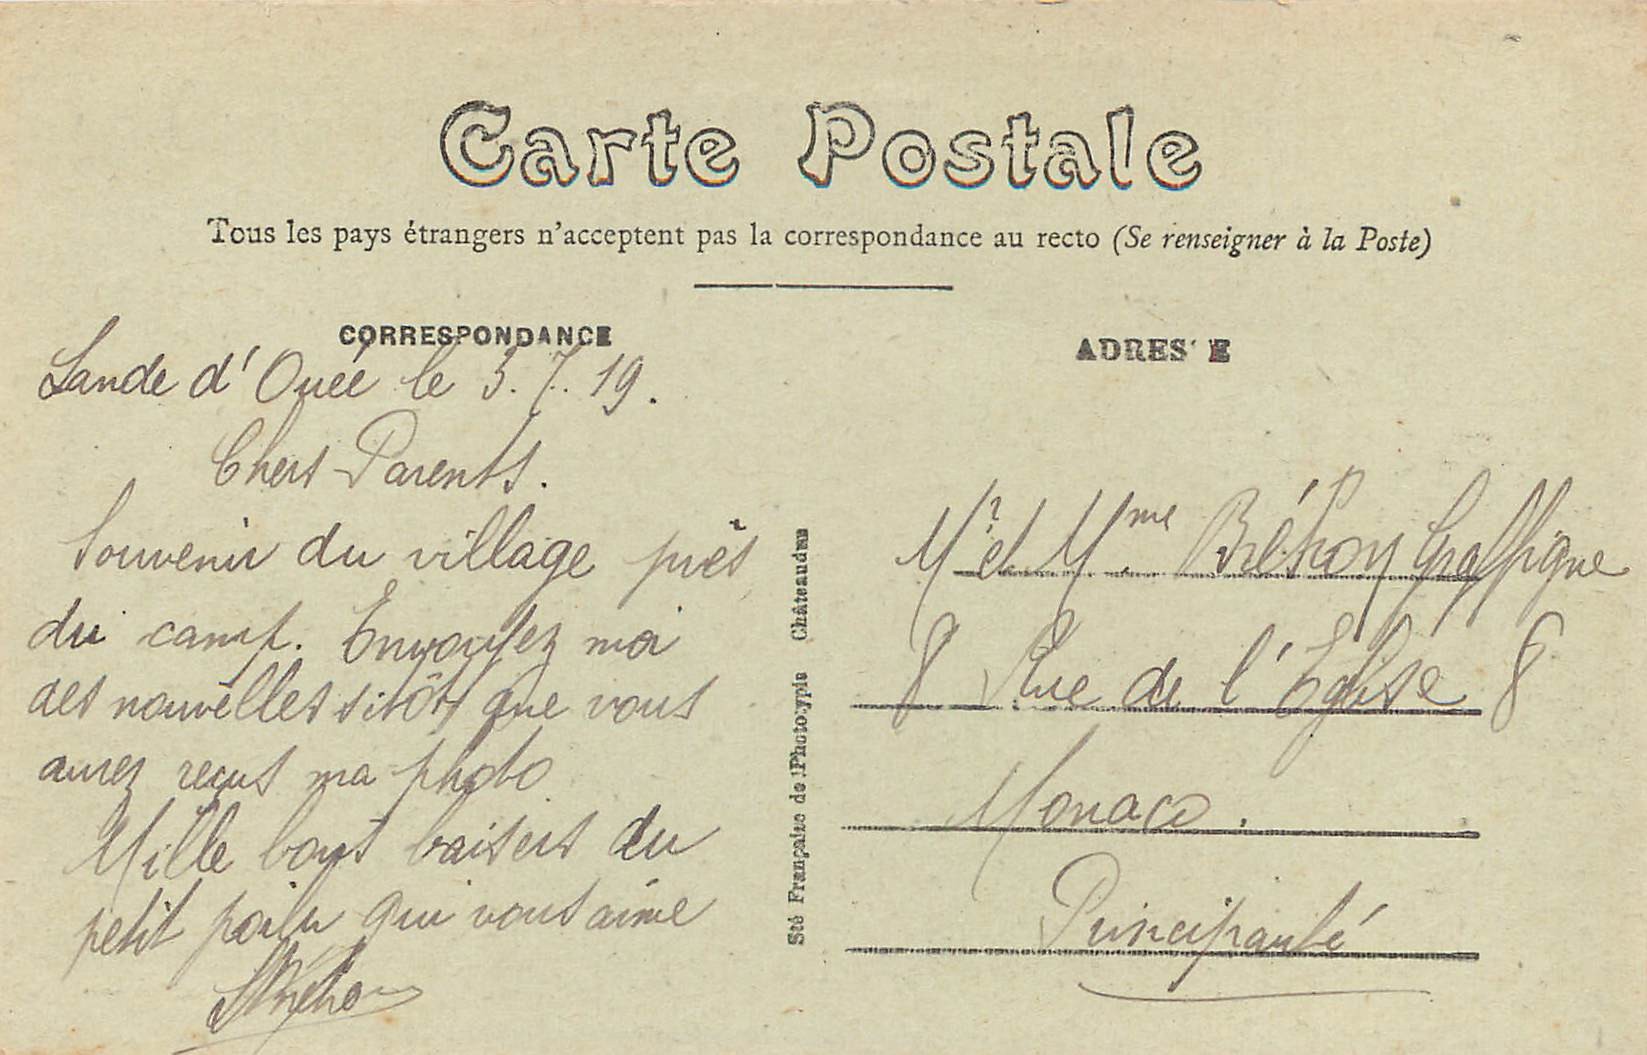 Carte Postale
Tous les pays étrangers n'acceptent pas la correspondance au recto (Se renseigner à la Poste)
CORRESPONDANCE
Lande d'Ouée le 5.7.19.
Chers Parents.
Souvenir du village près
du camp. Envoyez moi
des nouvelles sitôt que vous
aurez reçus ma photo
Mille bons baisers du
petit poilu qui vous aime
Sté Française de Phototypie Châteaudun
ADRESSE
Mr et Mme
8 Rue de l'Eglise 8
Monaco.
Principauté